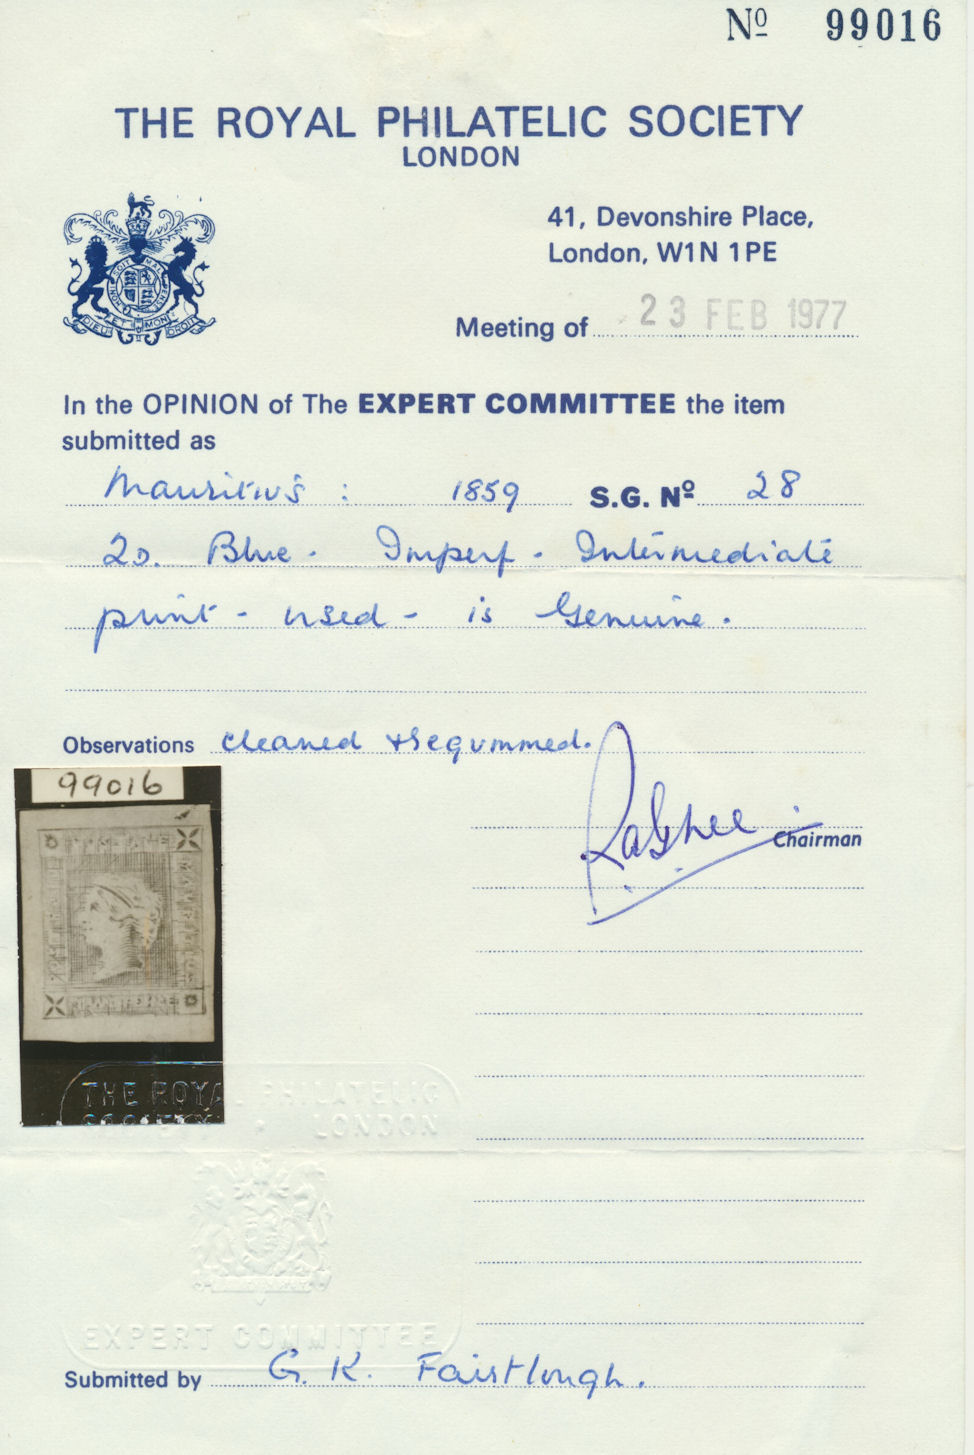 Nº 99016
THE ROYAL PHILATELIC SOCIETY
LONDON
41, Devonshire Place,
London, W1N 1PE
Meeting of 23 FEB 1977
In the OPINION of The EXPERT COMMITTEE the item
submitted as
Mauritius : 1859 S.G. Nº 28
2D. Blue. Imperf. Intermediate
print - used - is Genuine.
Observations cleaned & regummed.
Chairman
99016
THE ROYAL PHILATELIC
SOCIETY • LONDON
EXPERT COMMITTEE
Submitted by G. K. Fairtlough.